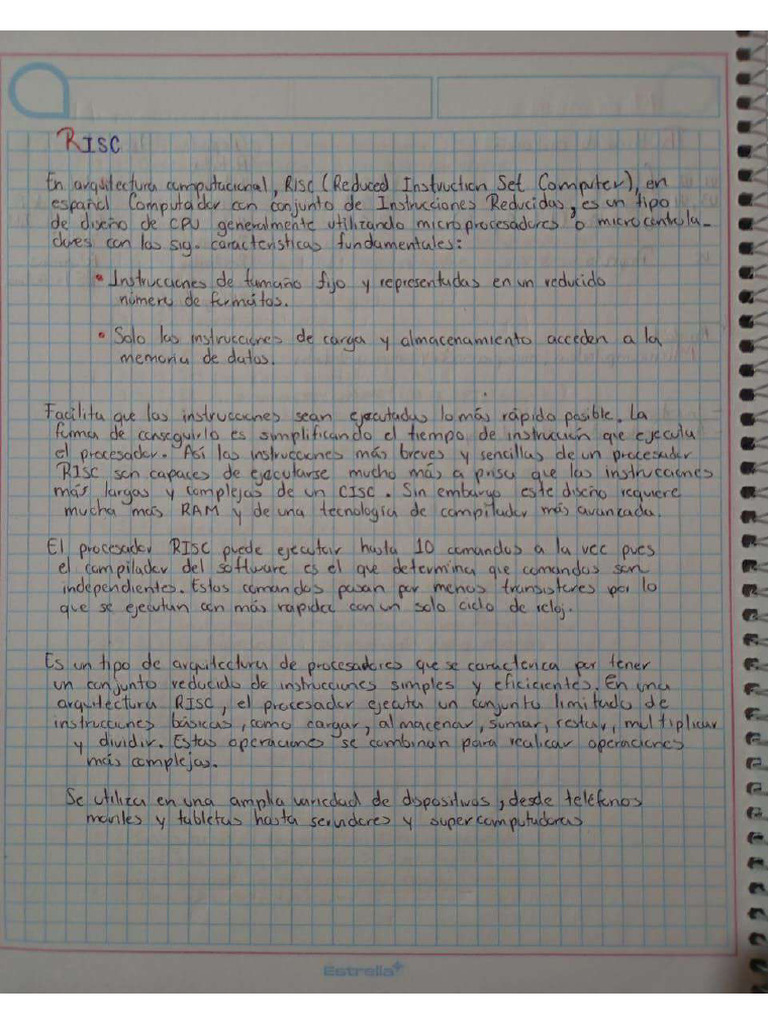 RISC
En arquitectura computacional, RISC (Reduced Instruction Set Computer), en
español Computador con conjunto de Instrucciones Reducidas, es un tipo
de diseño de CPU generalmente utilizando microprocesadores o microcontrola-
dores con las sig. características fundamentales:
• Instrucciones de tamaño fijo y representadas en un reducido
número de formatos.
• Solo las instrucciones de carga y almacenamiento acceden a la
memoria de datos.
Facilita que las instrucciones sean ejecutadas lo más rápido posible. La
forma de conseguirlo es simplificando el tiempo de instrucción que ejecuta
el procesador. Así las instrucciones más breves y sencillas de un procesador
RISC son capaces de ejecutarse mucho más a prisa que las instrucciones
más largas y complejas de un CISC. Sin embargo este diseño requiere
mucha más RAM y de una tecnología de compilador más avanzada.
El procesador RISC puede ejecutar hasta 10 comandos a la vez pues
el compilador del software es el que determina que comandos son
independientes. Estos comandos pasan por menos transistores por lo
que se ejecutan con más rapidez con un solo ciclo de reloj.
Es un tipo de arquitectura de procesadores que se caracteriza por tener
un conjunto reducido de instrucciones simples y eficientes. En una
arquitectura RISC, el procesador ejecuta un conjunto limitado de
instrucciones básicas, como cargar, almacenar, sumar, restar, multiplicar
y dividir. Estas operaciones se combinan para realizar operaciones
más complejas.
Se utiliza en una amplia variedad de dispositivos, desde teléfonos
moviles y tabletas hasta servidores y supercomputadoras
Estrella